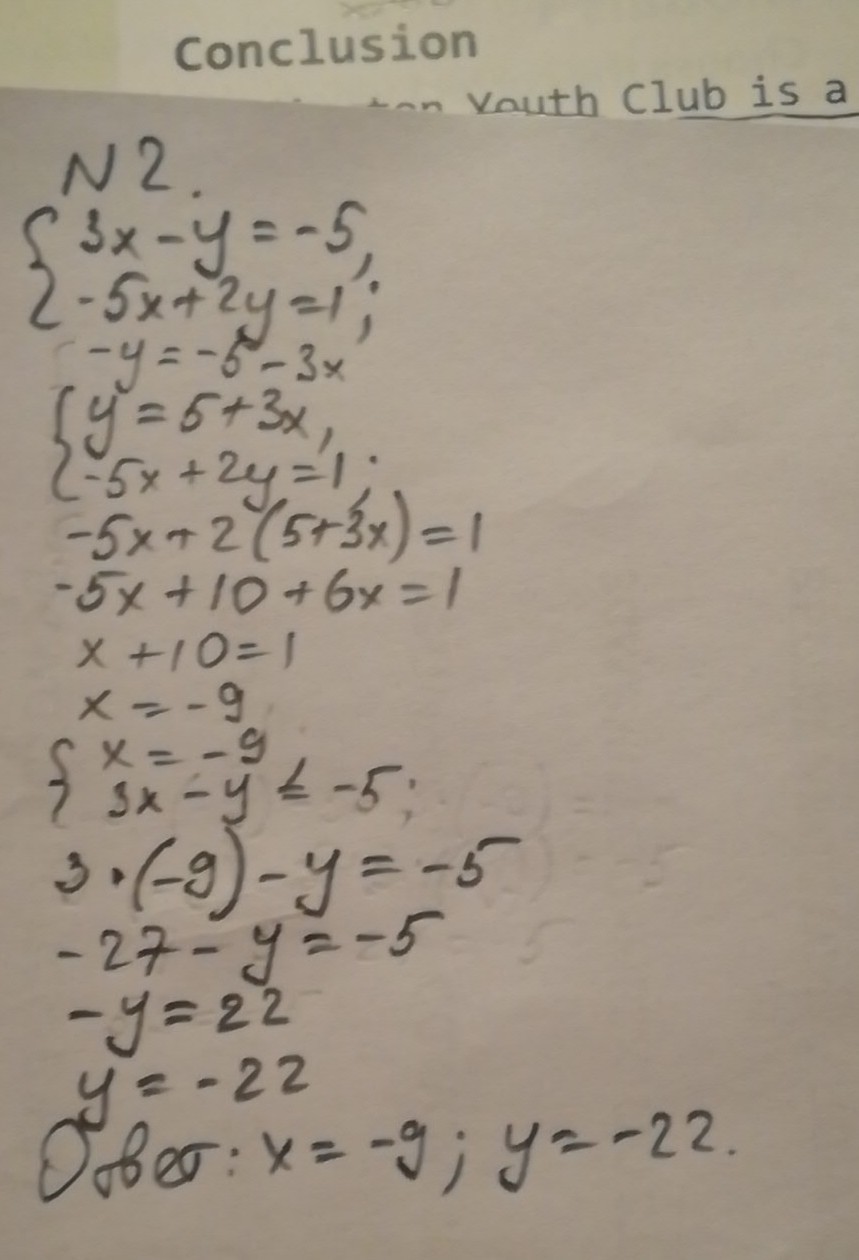 Conclusion
Youth Club is a
N 2.
{ 3x - y = -5,
-5x + 2y = 1;
-y = -5 - 3x
{ y = 5 + 3x,
-5x + 2y = 1;
-5x + 2(5+3x) = 1
-5x + 10 + 6x = 1
x + 10 = 1
x = -9
{ x = -9
3x - y = -5;
3 · (-9) - y = -5
-27 - y = -5
-y = 22
y = -22
Ответ: x = -9; y = -22.